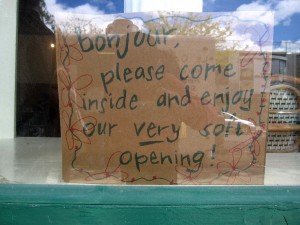 bonjour,
please come
inside and enjoy
our very soft
opening!